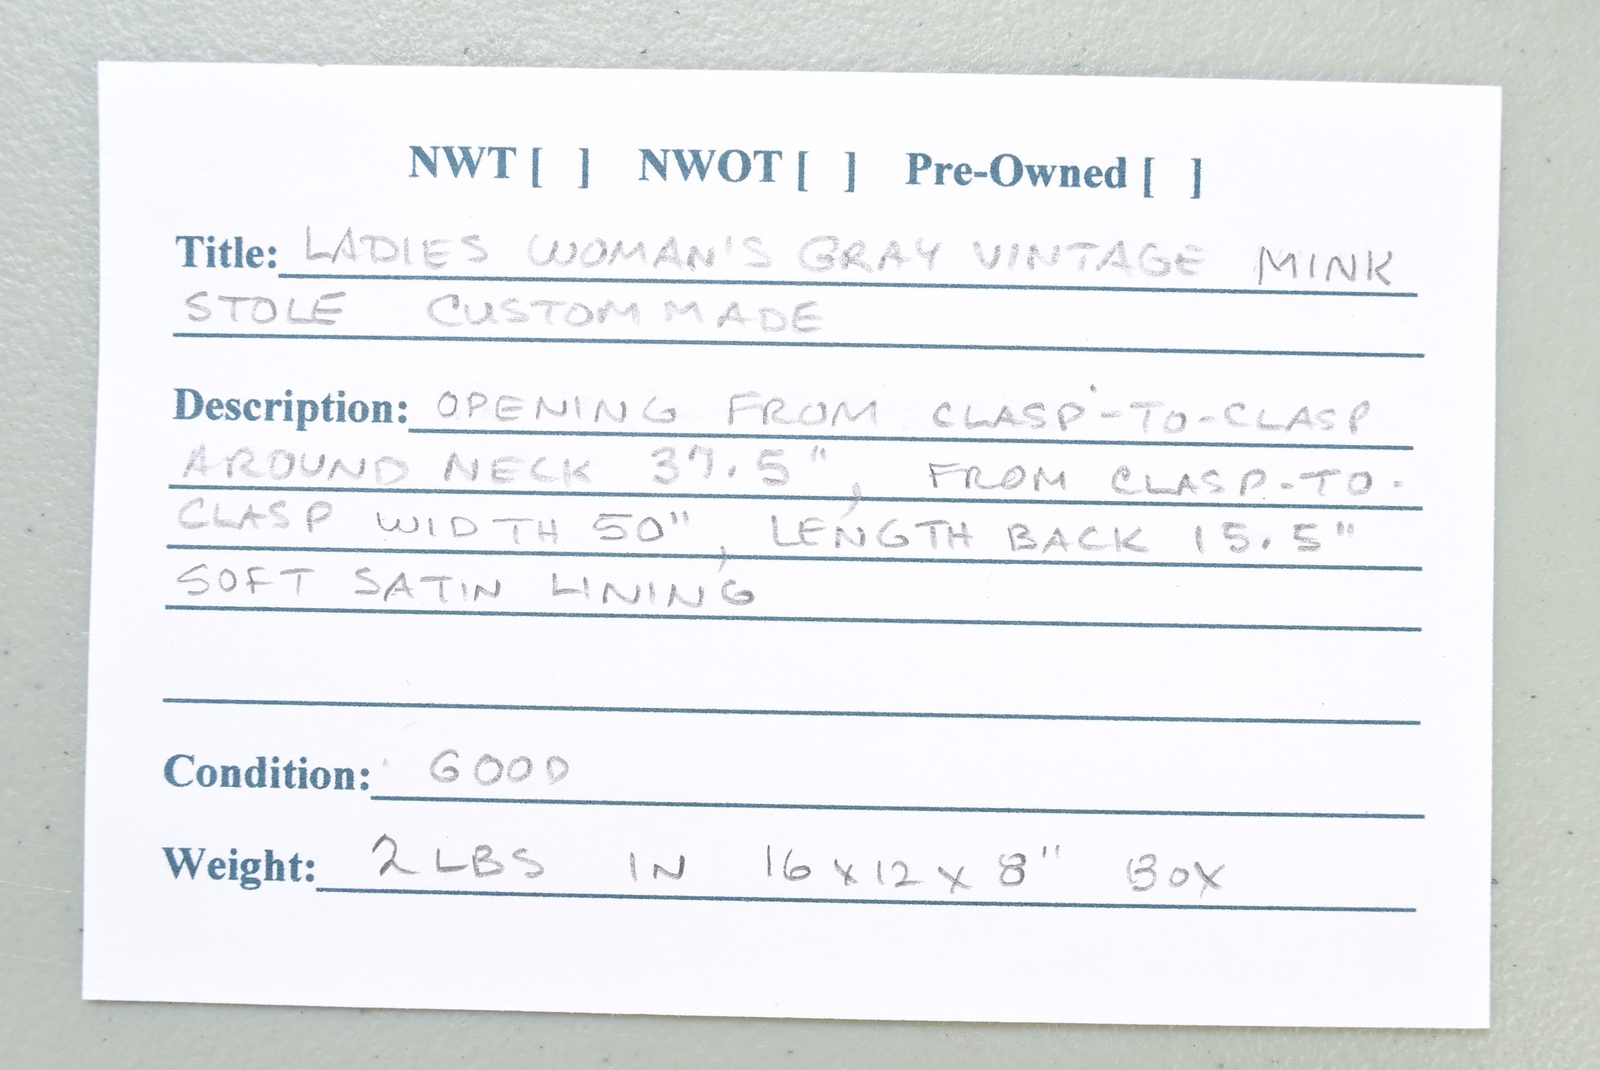 NWT [ ] NWOT [ ] Pre-Owned [ ]
Title: LADIES WOMAN'S GRAY VINTAGE MINK
STOLE CUSTOM MADE
Description: OPENING FROM CLASP-TO-CLASP
AROUND NECK 37.5", FROM CLASP-TO-
CLASP WIDTH 50", LENGTH BACK 15.5"
SOFT SATIN LINING
Condition: GOOD
Weight: 2 LBS IN 16x12x8" BOX